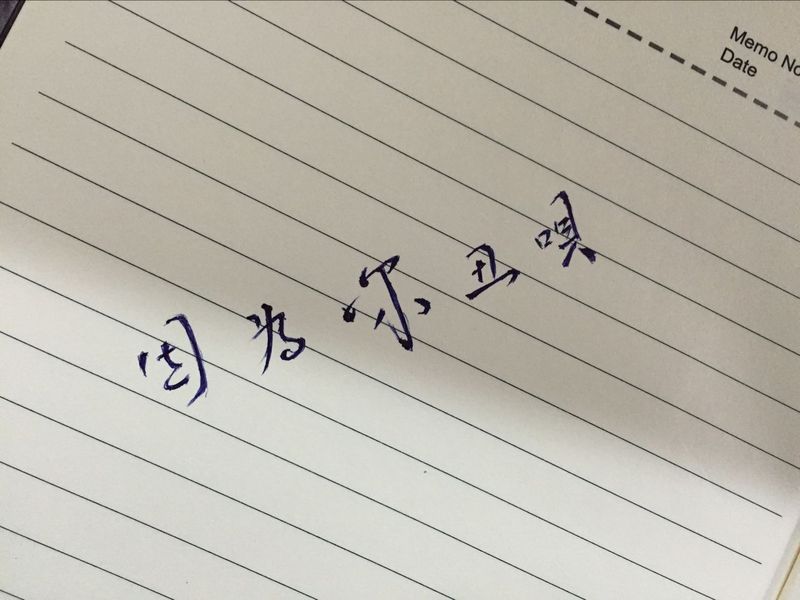 Memo No
Date
因为尔丑嗅